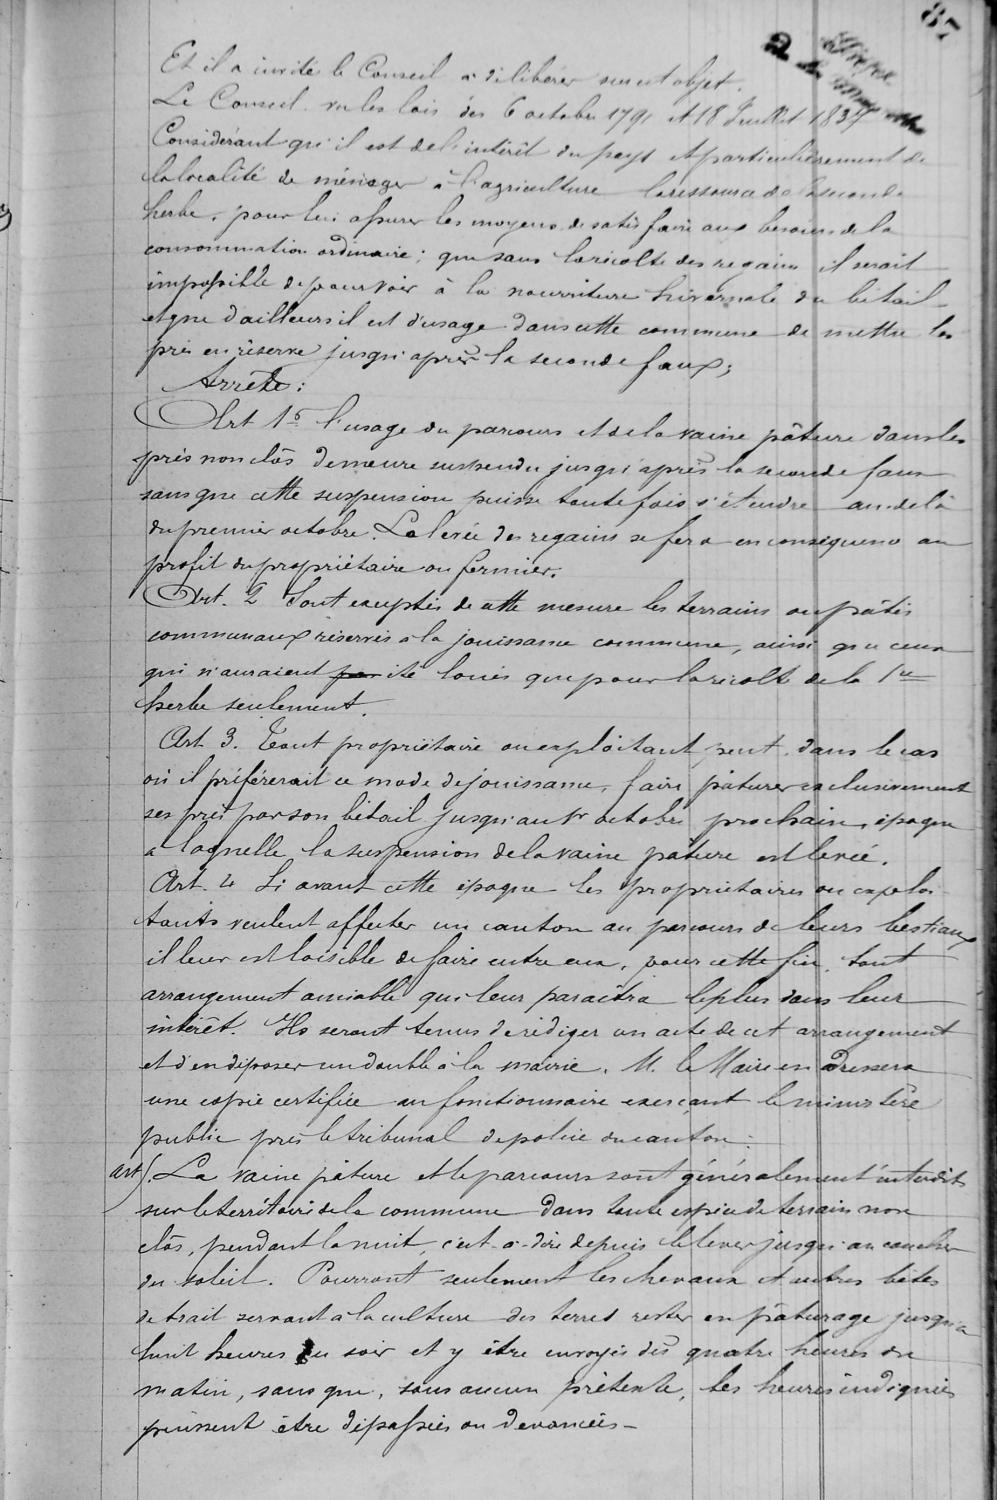 87
Et il a invité le Conseil à délibérer sur cet objet.
Le Conseil vu les lois des 6 octobre 1791 et 18 Juillet 1837
Considérant qu'il est de l'intérêt du pays et particulièrement de
la localité de ménager à l'agriculture la ressource de la seconde
herbe, pour lui assurer les moyens de satisfaire aux besoins de la
consommation ordinaire; que sans la récolte des regains il serait
impossible de pourvoir à la nourriture hivernale du bétail
et que d'ailleurs il est d'usage dans cette commune de mettre les
prés en réserve jusqu'après la seconde faux;
Arrête:
Art 1o l'usage du parcours et de la vaine pâture dans les
prés non clos demeure suspendu jusqu'après la seconde faux
sans que cette suspension puisse toutefois s'étendre au delà
du premier octobre. La levée des regains se fera en conséquence au
profit du propriétaire ou fermier.
Art. 2 Sont exceptés de cette mesure les terrains ou pâtis
communaux réservés à la jouissance commune, ainsi que ceux
qui n'auraient pas été loués que pour la récolte de la 1re
herbe seulement.
Art 3. Tout propriétaire ou exploitant peut, dans le cas
où il préférerait ce mode de jouissance, faire pâturer exclusivement
ses prés par son bétail jusqu'au 1r octobre prochain, époque
a laquelle la suspension de la vaine pâture est levée.
Art. 4 Si avant cette époque les propriétaires ou exploi
tants veulent affecter un canton au parcours de leurs bestiaux
il leur est loisible de faire entre eux, pour cette fin, tout
arrangement amiable qui leur paraîtra le plus dans leur
intérêt. Ils seront tenus de rédiger un acte de cet arrangement
et d'en déposer un double à la mairie. M. le Maire en adressera
une copie certifiée au fonctionnaire exerçant le ministère
public près le tribunal de police du canton.
art 5. La vaine pâture et le parcours sont généralement interdits
sur le territoire de la commune dans toute espèce de terrain non
clos, pendant la nuit, c'est-à-dire depuis le lever jusqu'au coucher
du soleil. Pourront seulement les chevaux et autres bêtes
de trait servant à la culture des terres rester en pâturage jusqu'à
huit heures du soir et y être envoyés dès quatre heures du
matin, sans que, sous aucun prétexte, les heures indiquées
puissent être dépassées ou devancées -